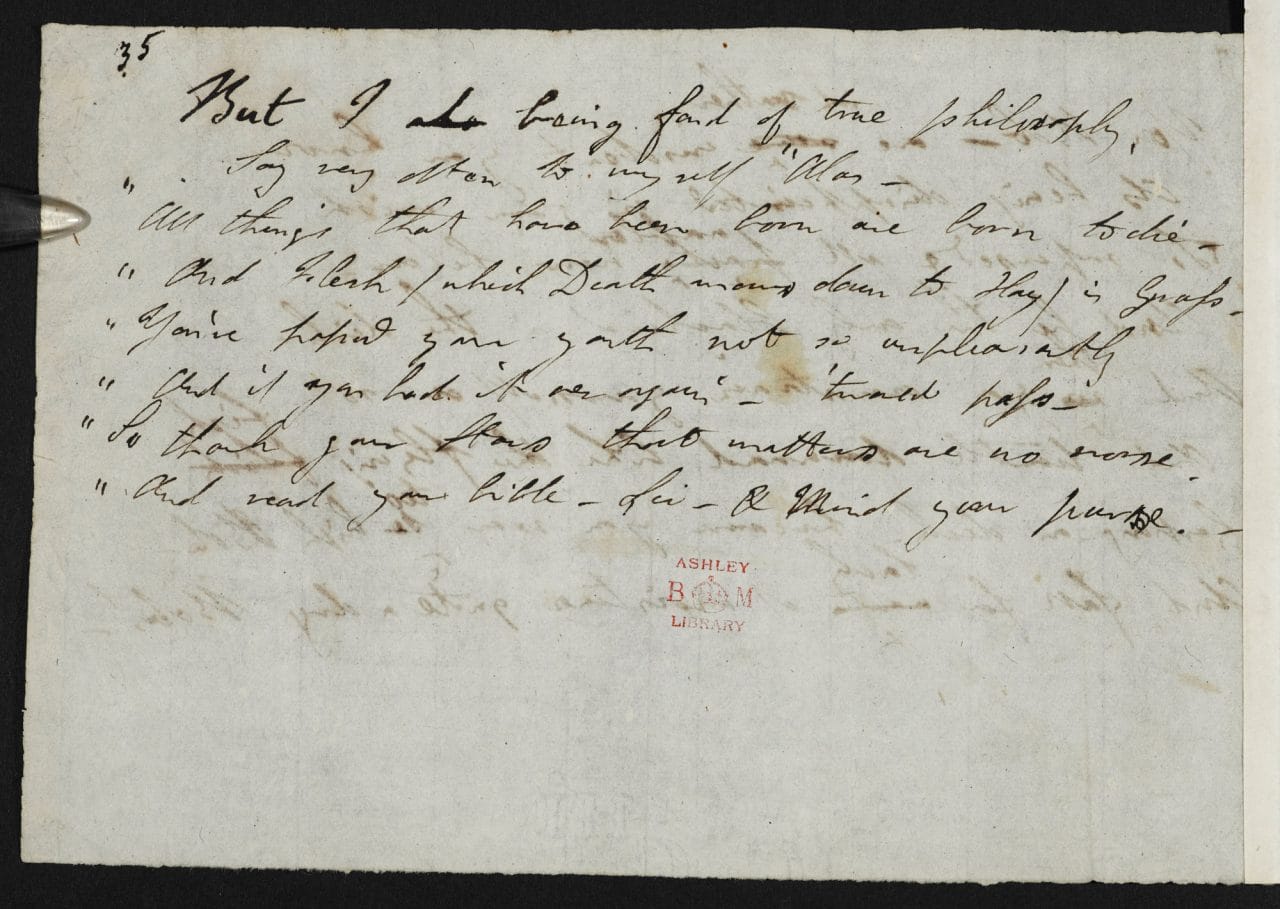 35
But I also being fond of true philosophy,
Say very often to myself "Alas –
" All things that have been born are born to die –
" And Flesh / which Death mows down to Hay / is Grass –
" You've passed your youth not so unpleasantly
" And if you had it over again – 'twould pass –
" So thank your Stars that matters are no worse
" And read your bible – Sir – & Mind your purse. –
ASHLEY
B M
LIBRARY